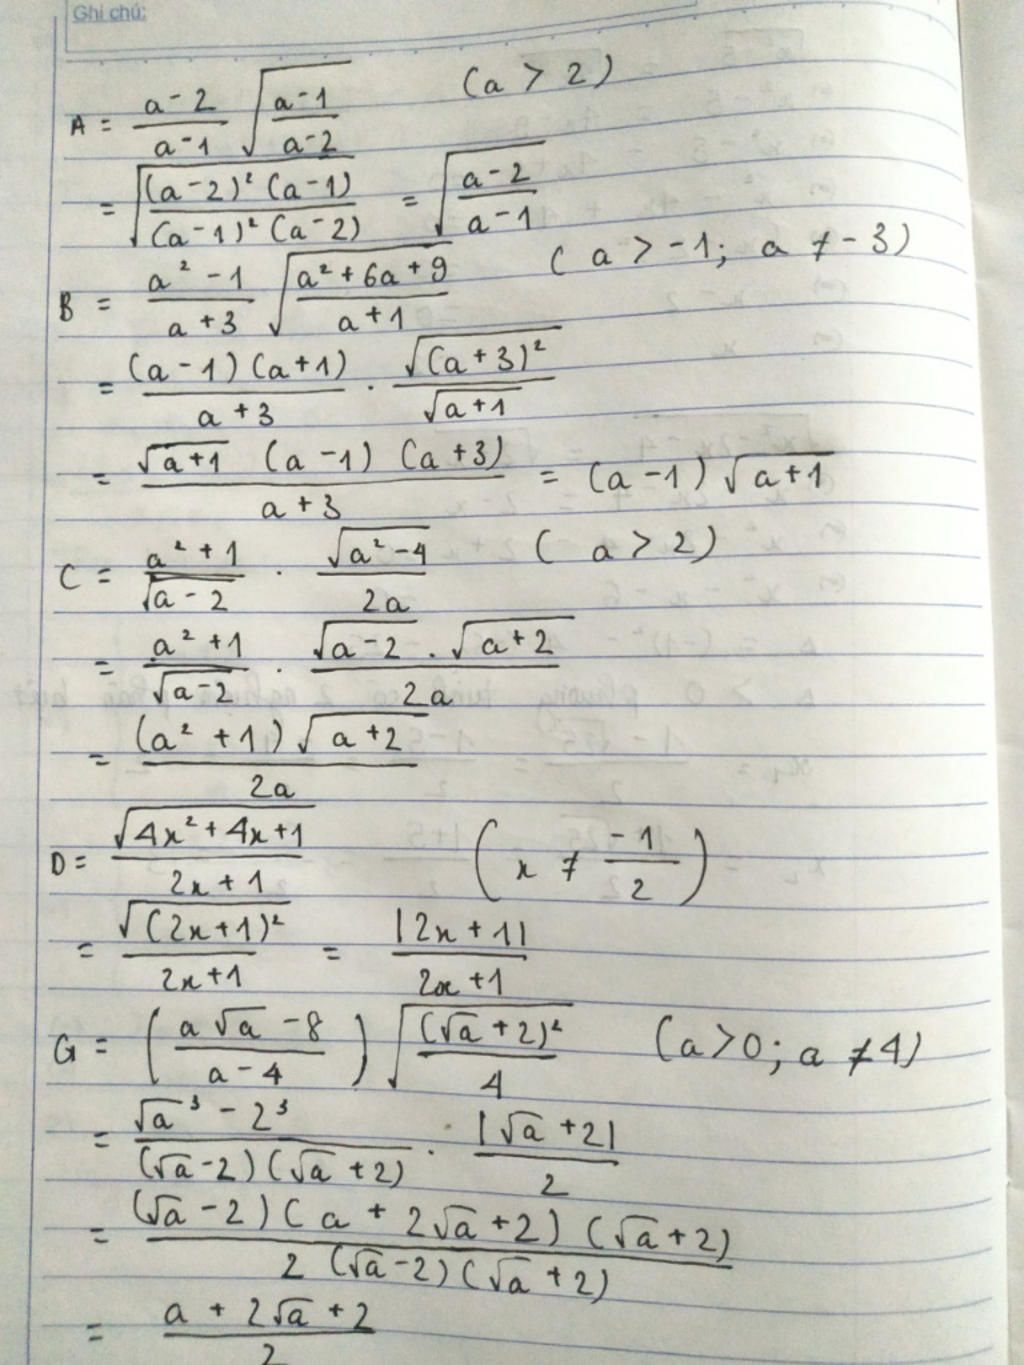 Ghi chú:
A = \frac{a-2}{a-1} \sqrt{\frac{a-1}{a-2}} (a > 2)
= \sqrt{\frac{(a-2)² (a-1)}{(a-1)² (a-2)}} = \sqrt{\frac{a-2}{a-1}}
B = \frac{a² - 1}{a + 3} \sqrt{\frac{a² + 6a + 9}{a + 1}} (a > -1; a ≠ -3)
= \frac{(a-1)(a+1)}{a+3} . \frac{\sqrt{(a+3)²}}{\sqrt{a+1}}
= \frac{\sqrt{a+1} (a-1) (a+3)}{a+3} = (a-1) \sqrt{a+1}
C = \frac{a² + 1}{\sqrt{a-2}} . \frac{\sqrt{a² - 4}}{2a} (a > 2)
= \frac{a² + 1}{\sqrt{a-2}} . \frac{\sqrt{a-2} . \sqrt{a+2}}{2a}
= \frac{(a² + 1) \sqrt{a+2}}{2a}
D = \frac{\sqrt{4x² + 4x + 1}}{2x + 1} (x ≠ \frac{-1}{2})
= \frac{\sqrt{(2x+1)²}}{2x+1} = \frac{|2x+1|}{2x+1}
G = (\frac{a\sqrt{a} - 8}{a - 4}) \sqrt{\frac{(\sqrt{a} + 2)²}{4}} (a > 0; a ≠ 4)
= \frac{\sqrt{a}³ - 2³}{(\sqrt{a} - 2)(\sqrt{a} + 2)} . \frac{|\sqrt{a} + 2|}{2}
= \frac{(\sqrt{a} - 2)(a + 2\sqrt{a} + 2)(\sqrt{a} + 2)}{2(\sqrt{a} - 2)(\sqrt{a} + 2)}
= \frac{a + 2\sqrt{a} + 2}{2}